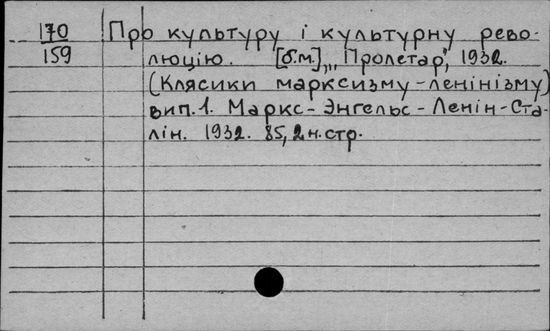 170 Про культуру і культурну рево-
159 люцію. [б.м.], "Пролетар", 1932.
(Клясики марксизму-ленінізму)
вип.1. Маркс-Энгельс-Ленін-Ста-
лін. 1932. 85, 2 н.стр.